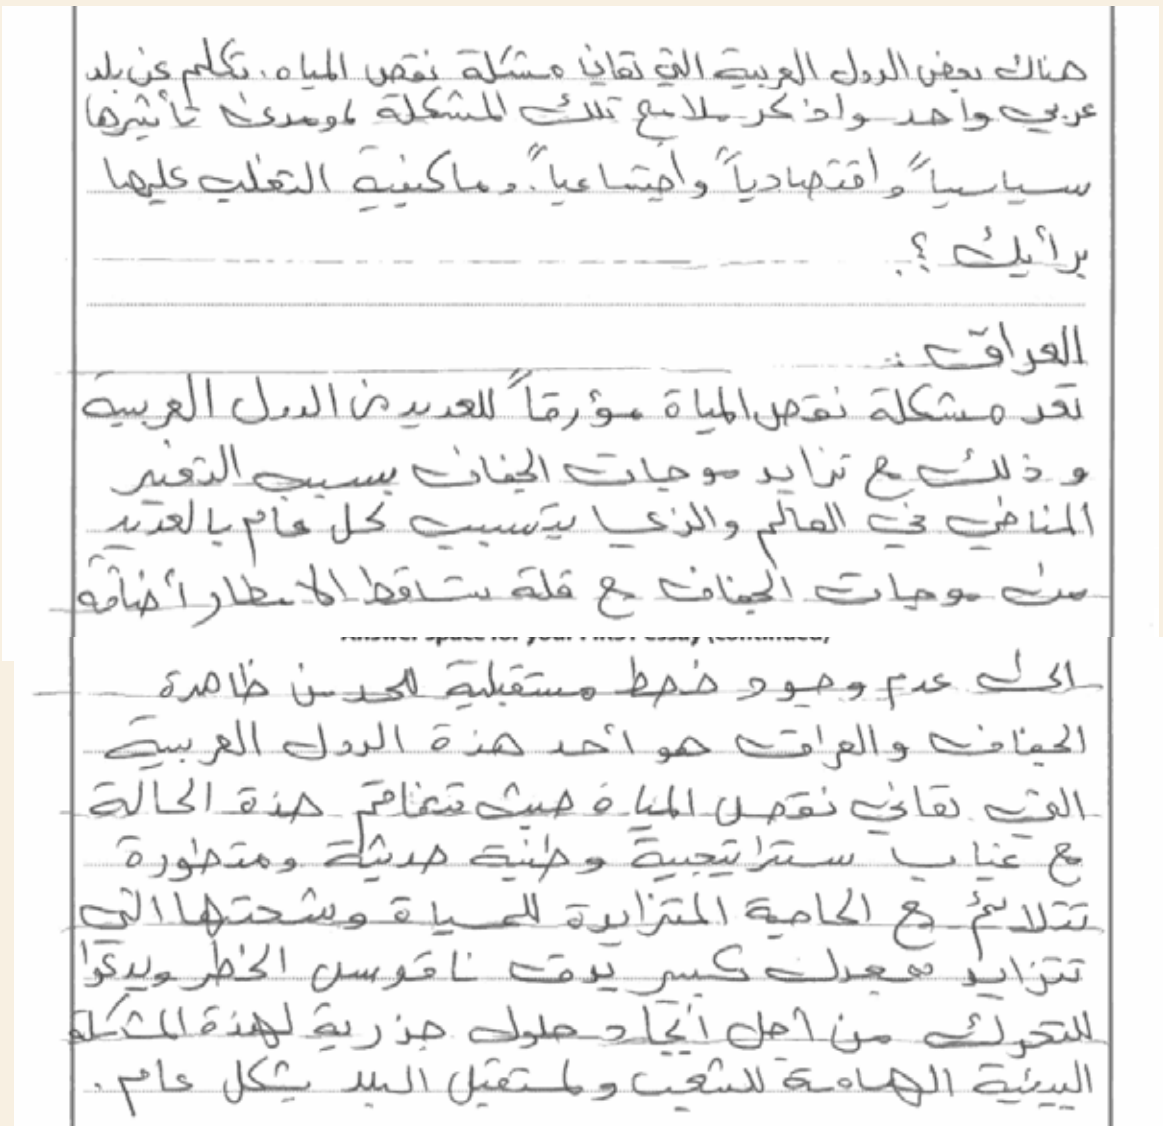 هناك بعض الدول العربية التي تعاني مشكلة نقص المياه. تكلم عن بلد
عربي واحد واذكر ملامح تلك المشكلة ومدى تأثيرها
سياسياً وأقتصادياً وأجتماعياً. وماكيفية التغلب عليها
برأيك ؟.
العراق :
تعد مشكلة نقص المياة مؤرقاً للعديد من الدول العربية
وذلك مع تزايد موجات الجفاف بسبب التغير
المناخي في العالم والذي يتسبب كل عام بالعديد
من موجات الجفاف مع قلة تساقط الامطار أضافة
Answer space for your FIRST essay (continued)
الى عدم وجود خطط مستقبلية للحد من ظاهرة
الجفاف والعراق هو أحد هذة الدول العربية
التي تعاني نقص المياة حيث تتفاقم هذة الحالة
مع غياب ستراتيجية وطنية حديثة ومتطورة
تتلائم مع الحاجة المتزايدة للمياة وشحتها التي
تتزايد بمعدل كبير يدق ناقوس الخطر ويدعوا
للتحرك من أجل أيجاد حلول جذرية لهذة المشكلة
البيئية الهامة للشعب ولمستقبل البلد بشكل عام .